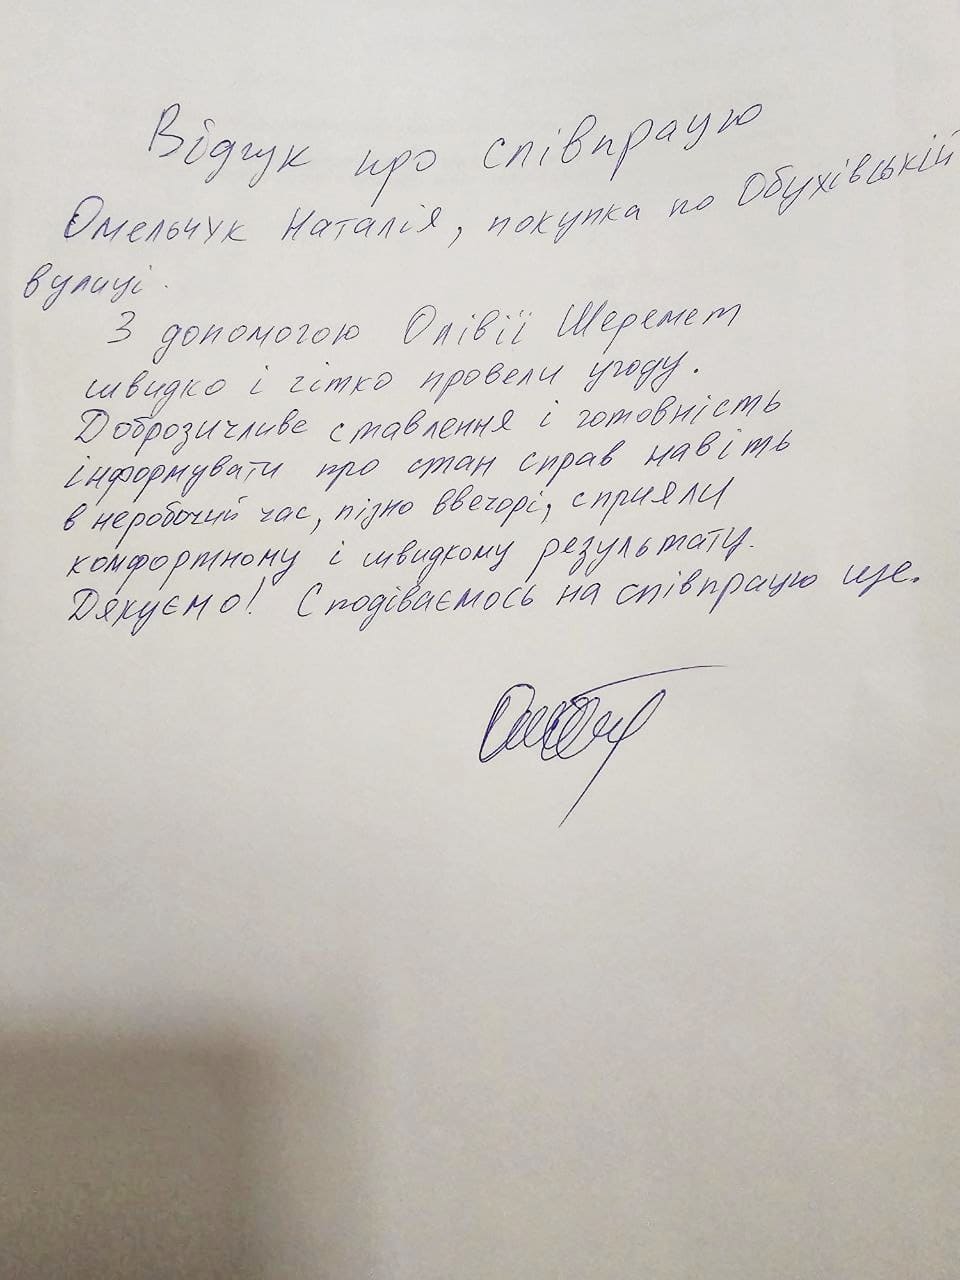 Відгук про співпрацю
Омельчук Наталія, покупка по Обухівській
вулиці.
З допомогою Олівії Шеремет
швидко і чітко провели угоду.
Доброзичливе ставлення і готовність
інформувати про стан справ навіть
в неробочий час, пізно ввечорі, сприяли
комфортному і швидкому результату.
Дякуємо! Сподіваємось на співпрацю ще.